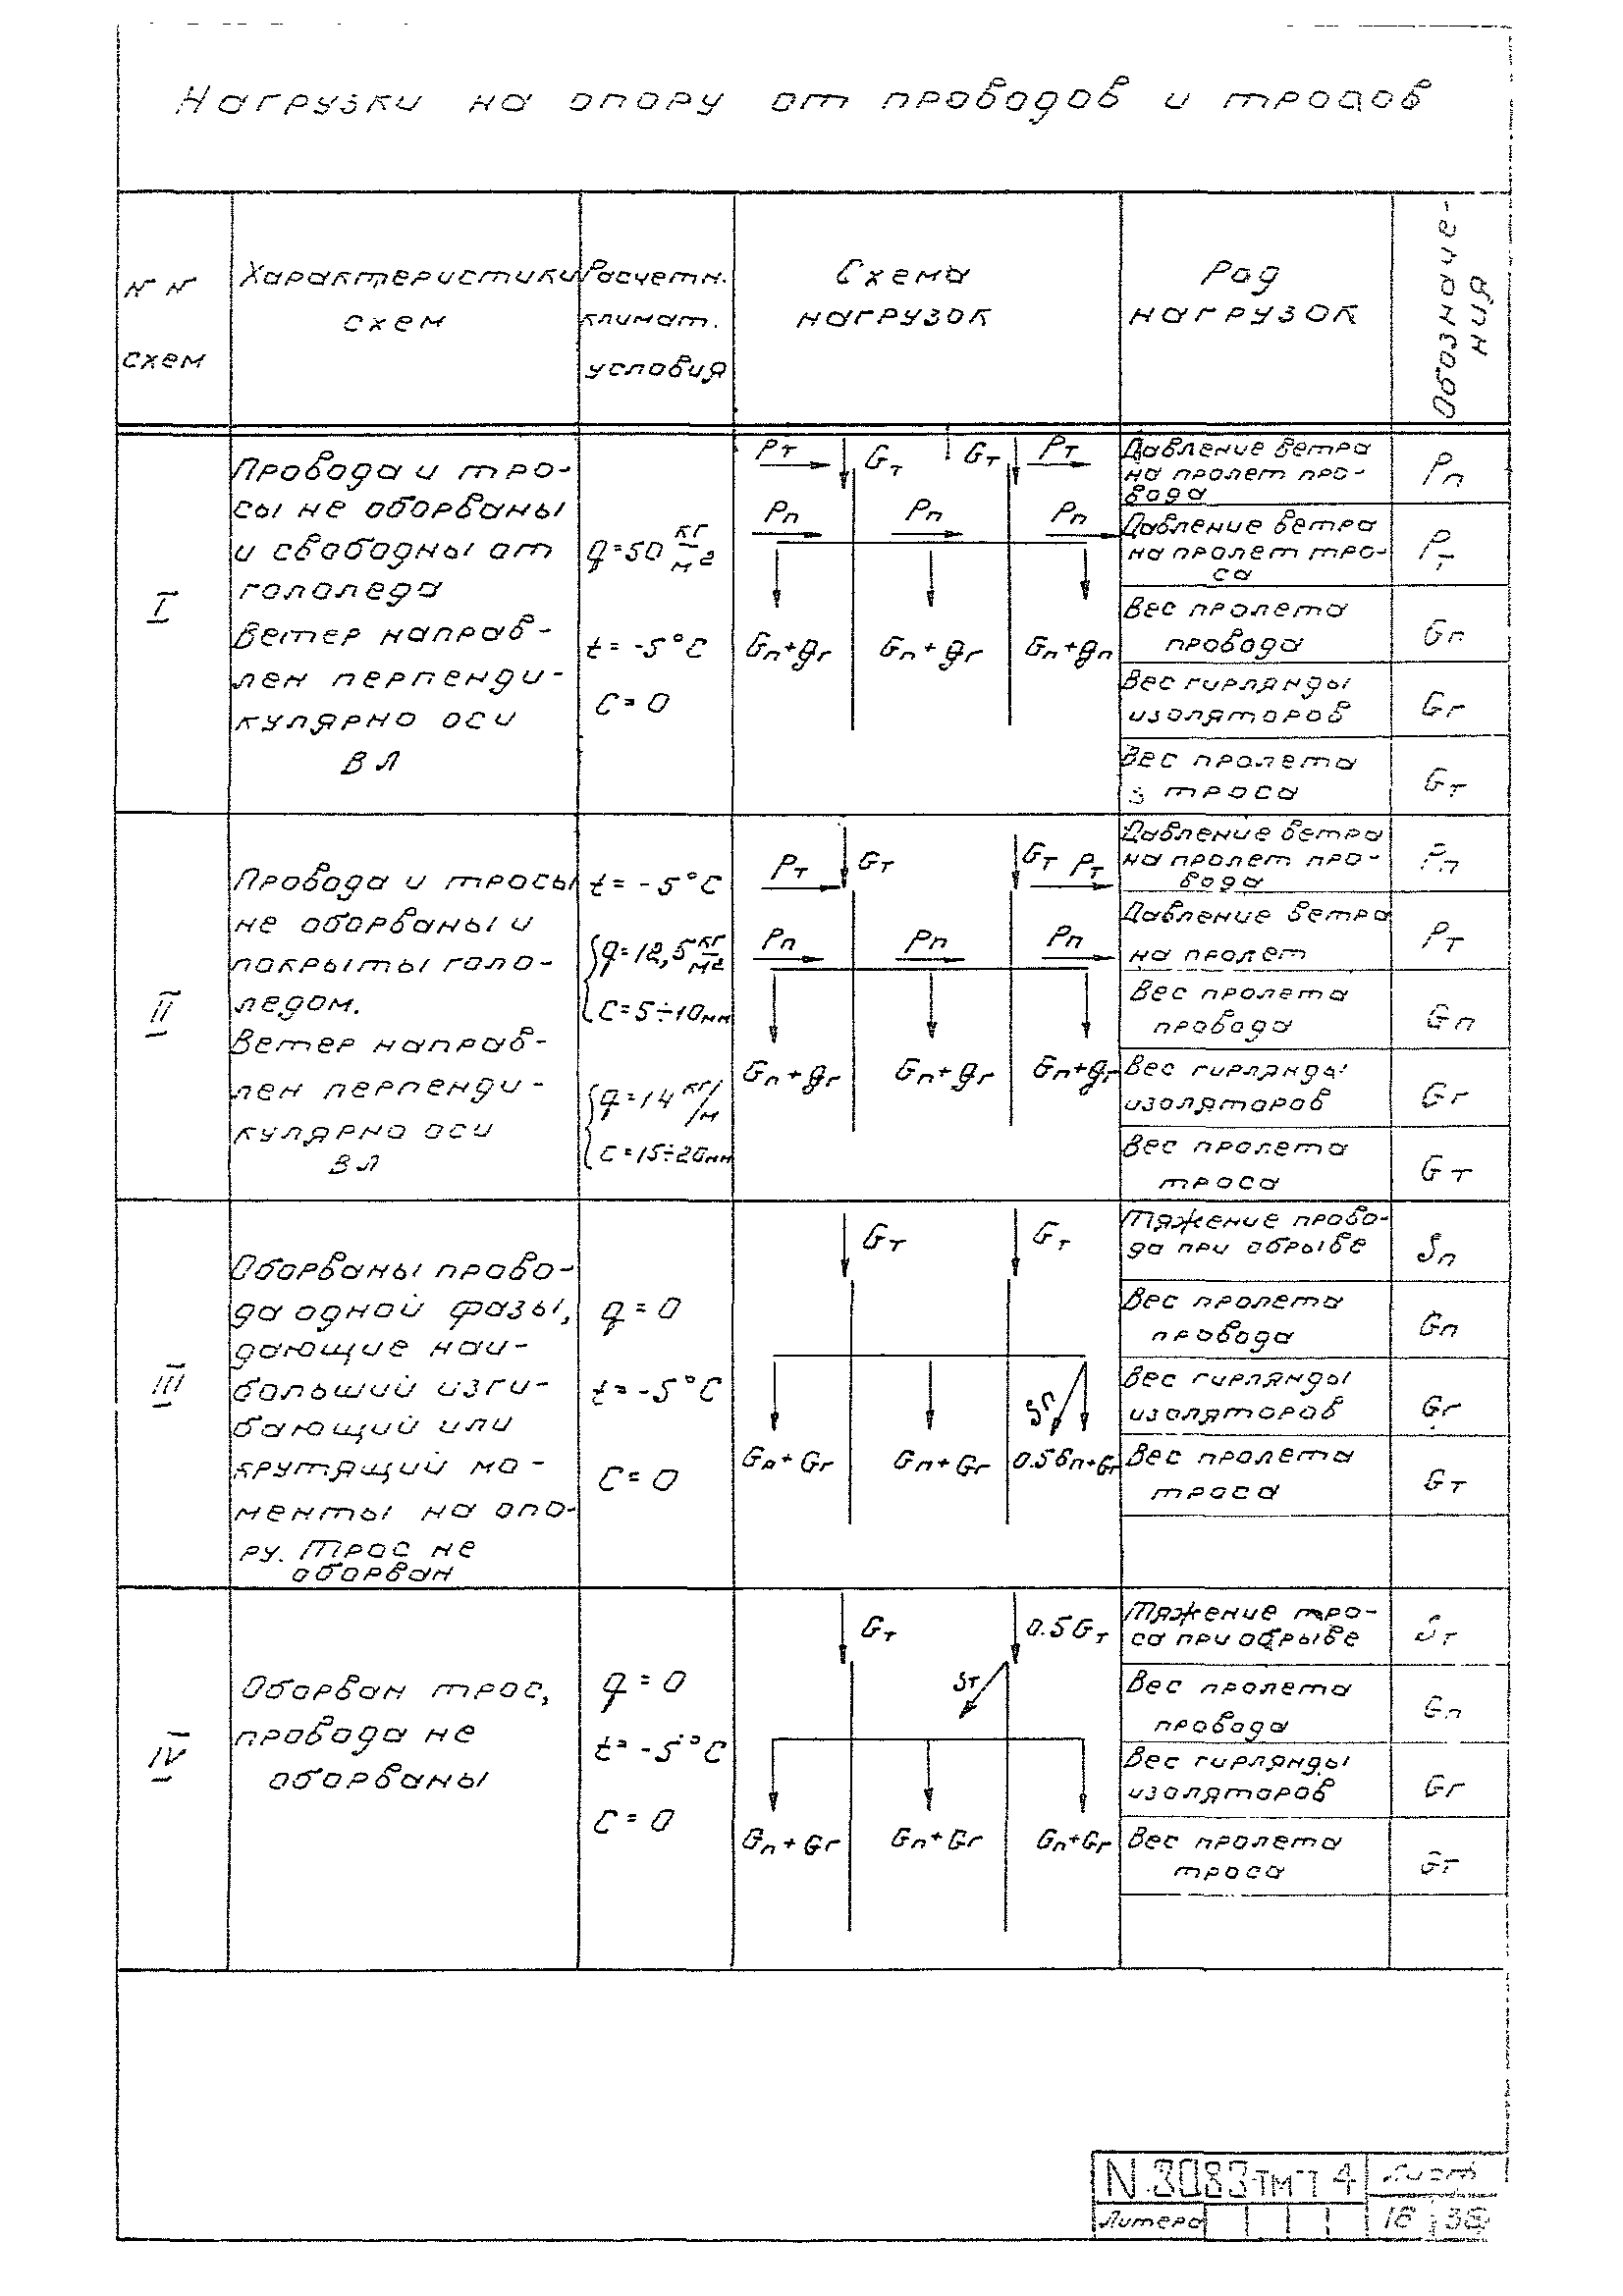 Нагрузки на опору от проводов и тросов
№ №
схем
Характеристики
схем
Расчетн.
климат.
условия
Схема
нагрузок
Род
нагрузок
Обозначе-
ния
I
Провода и тро-
сы не оборваны
и свободны от
гололеда
Ветер направ-
лен перпенди-
кулярно оси
ВЛ
q=50 кг/м²
t=-5°C
C=0
Pт Gт Gт Pт
Pп Pп Pп
Gп+gг Gп+gг Gп+gп
Давление ветра
на пролет про-
вода
Pп
Давление ветра
на пролет тро-
са
Pт
Вес пролета
провода
Gп
Вес гирлянды
изоляторов
Gг
Вес пролета
троса
Gт
II
Провода и тросы
не оборваны и
покрыты голо-
ледом.
Ветер направ-
лен перпенди-
кулярно оси
ВЛ
t=-5°C
q=12,5 кг/м²
C=5÷10мм
q=14 кг/м
C=15÷20мм
Pт Gт Gт Pт
Pп Pп Pп
Gп+gг Gп+gг Gп+gг
Давление ветра
на пролет про-
вода
Pп
Давление ветра
на пролет
Pт
Вес пролета
провода
Gп
Вес гирлянды
изоляторов
Gг
Вес пролета
троса
Gт
III
Оборваны прово-
да одной фазы,
дающие наи-
больший изги-
бающий или
крутящий мо-
менты на опо-
ру. Трос не
оборван
q=0
t=-5°C
C=0
Gт Gт
Sп
Gп+Gг Gп+Gг 0.5Gп+Gг
Тяжение прово-
да при обрыве
Sп
Вес пролета
провода
Gп
Вес гирлянды
изоляторов
Gг
Вес пролета
троса
Gт
IV
Оборван трос,
провода не
оборваны
q=0
t=-5°C
C=0
Gт 0.5Gт
Sт
Gп+Gг Gп+Gг Gп+Gг
Тяжение тро-
са при обрыве
Sт
Вес пролета
провода
Gп
Вес гирлянды
изоляторов
Gг
Вес пролета
троса
Gт
N.3083тм-т4
Лист
Литера
16 38